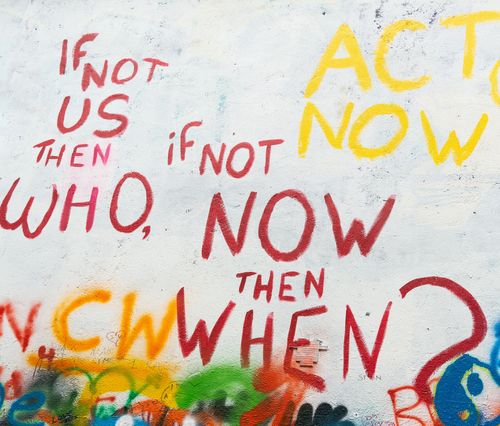 IF
NOT
US
THEN
WHO,
iF NOT
NOW
THEN
WHEN?
ACT
NOW
CW